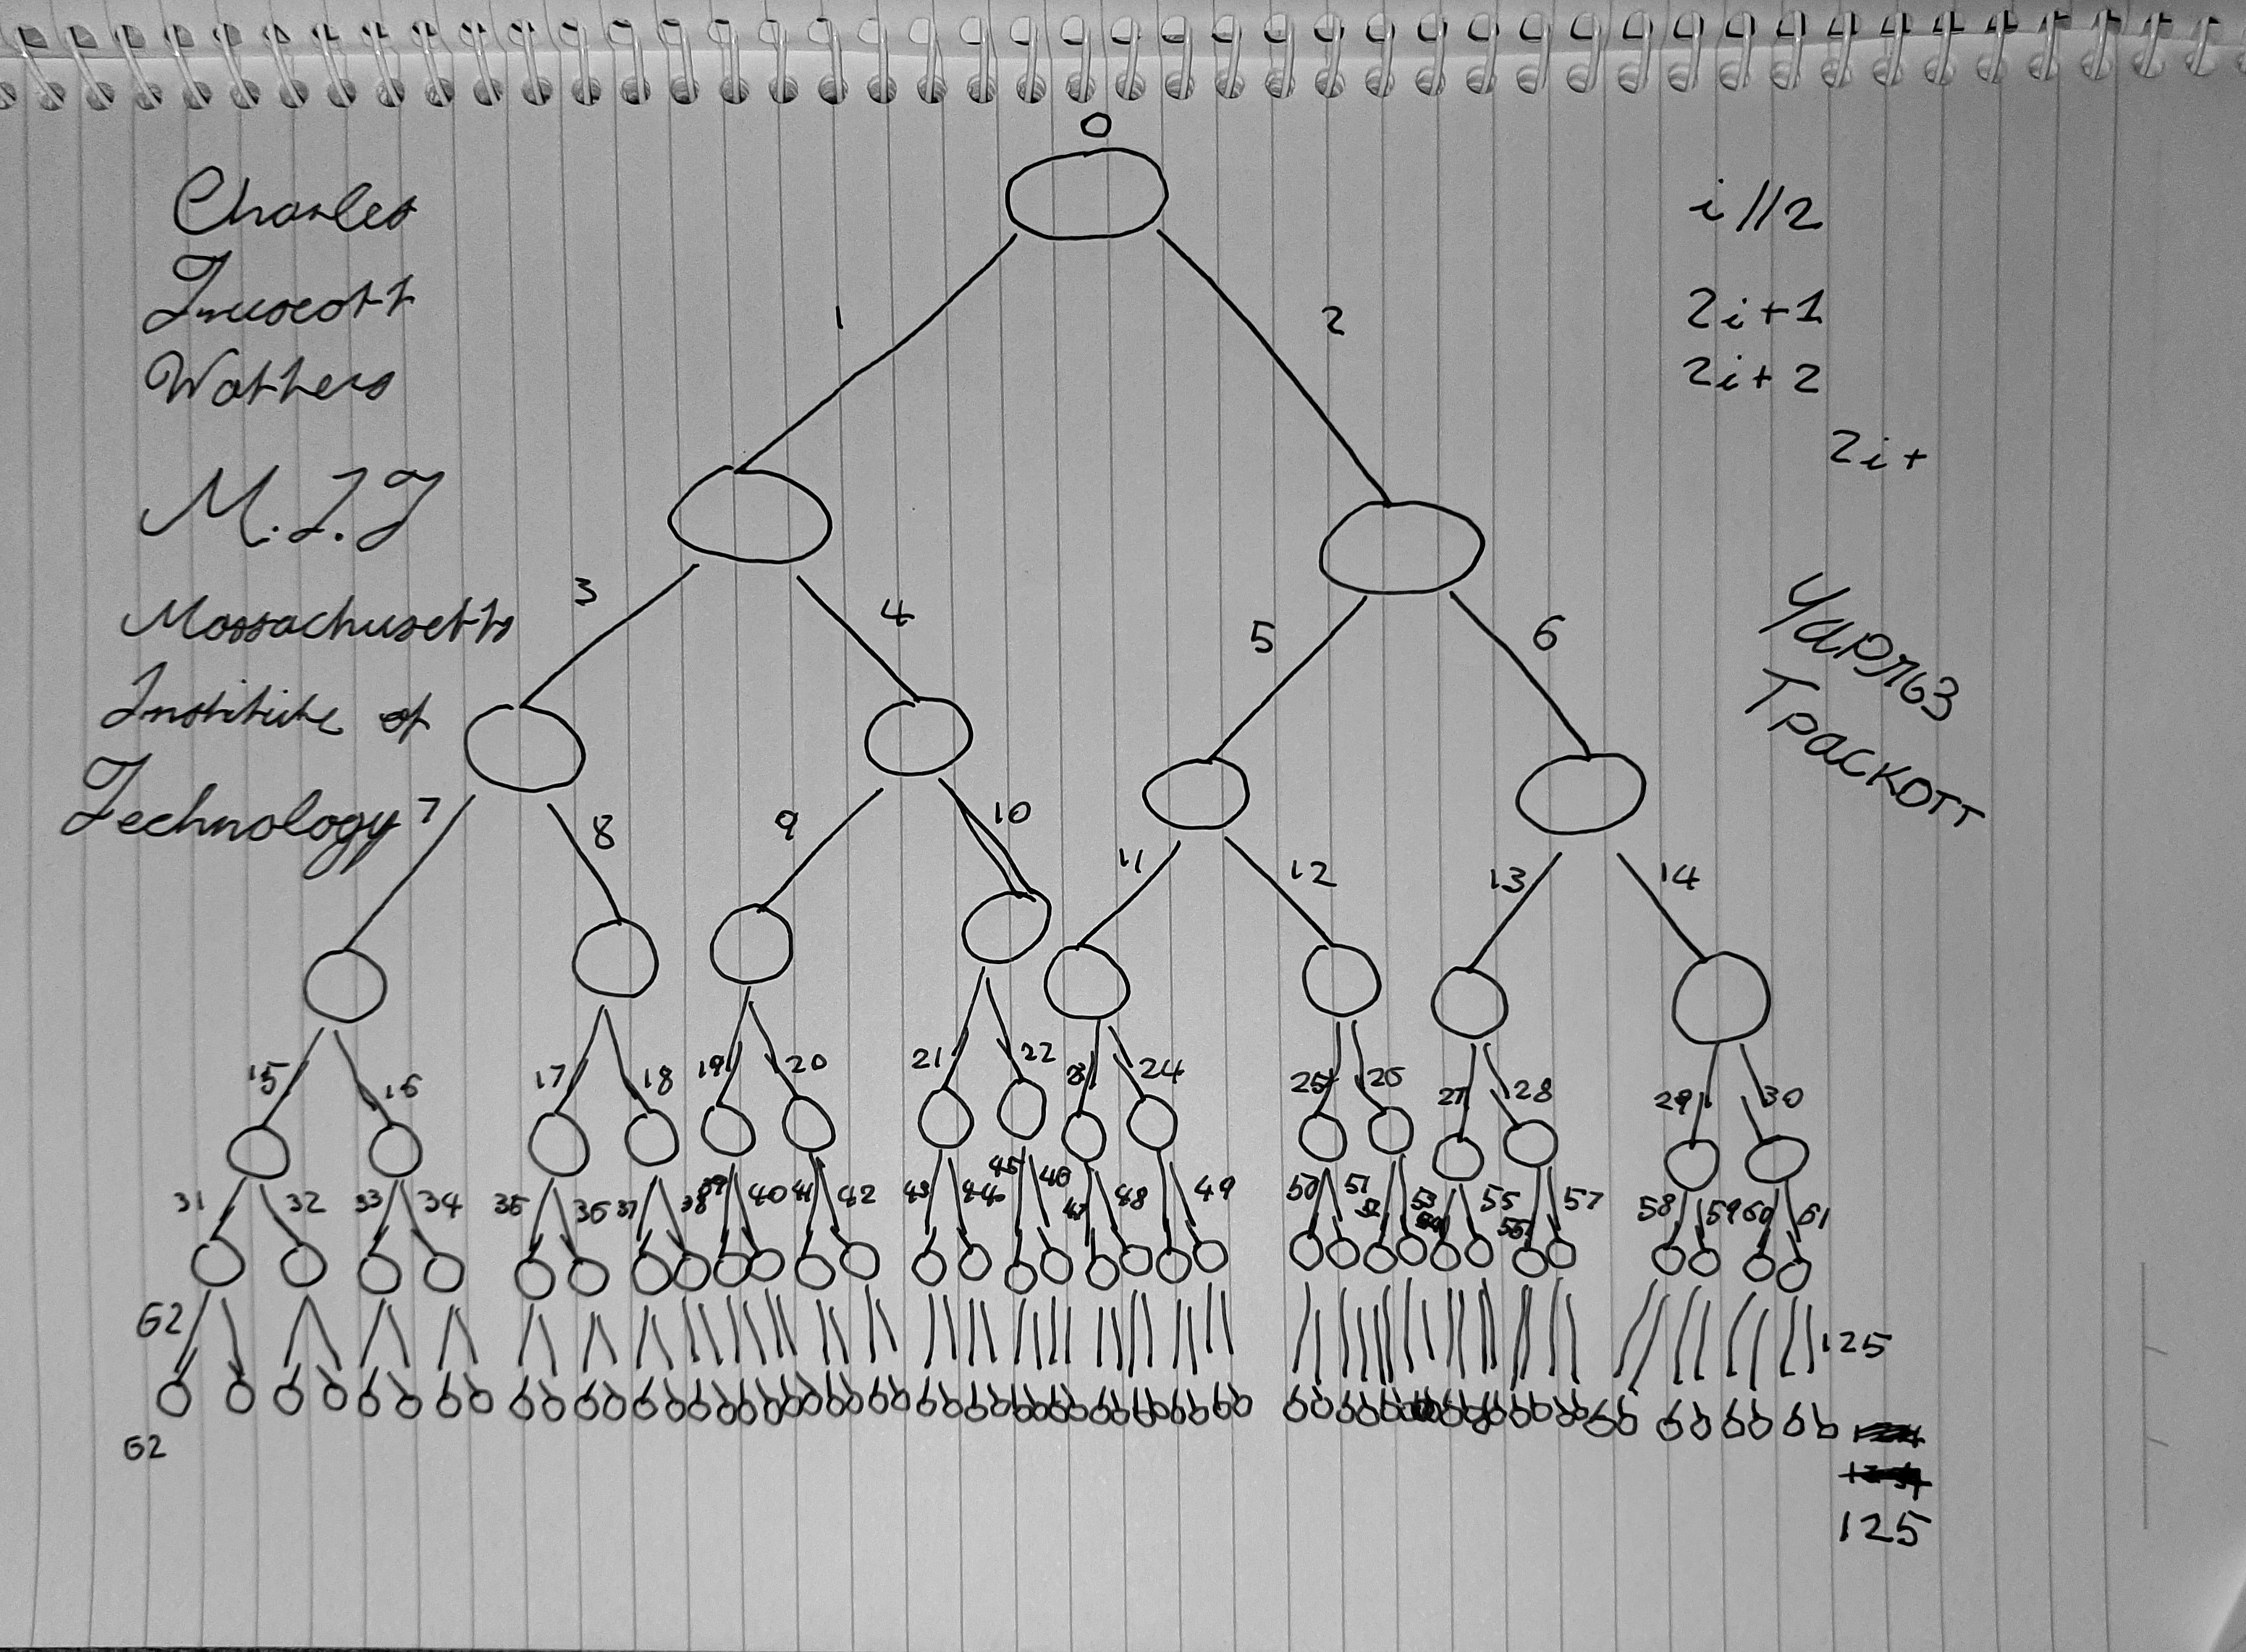 0
Charles
Truscott
Watters
M.I.T
Massachusetts
Institute of
Technology
i//2
2i+1
2i+2
2i+
Чарльз
Траскотт
1 2
3 4 5 6
7 8 9 10 11 12 13 14
15 16 17 18 19 20 21 22 23 24 25 26 27 28 29 30
31 32 33 34 35 36 37 38 39 40 41 42 43 44 45 46 47 48 49 50 51 52 53 54 55 56 57 58 59 60 61
62 125
62
125